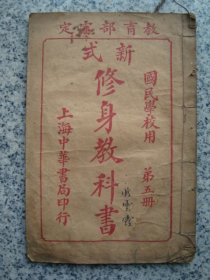 教育部審定
新式
修身教科書
國民學校用
第五冊
上海中華書局印行